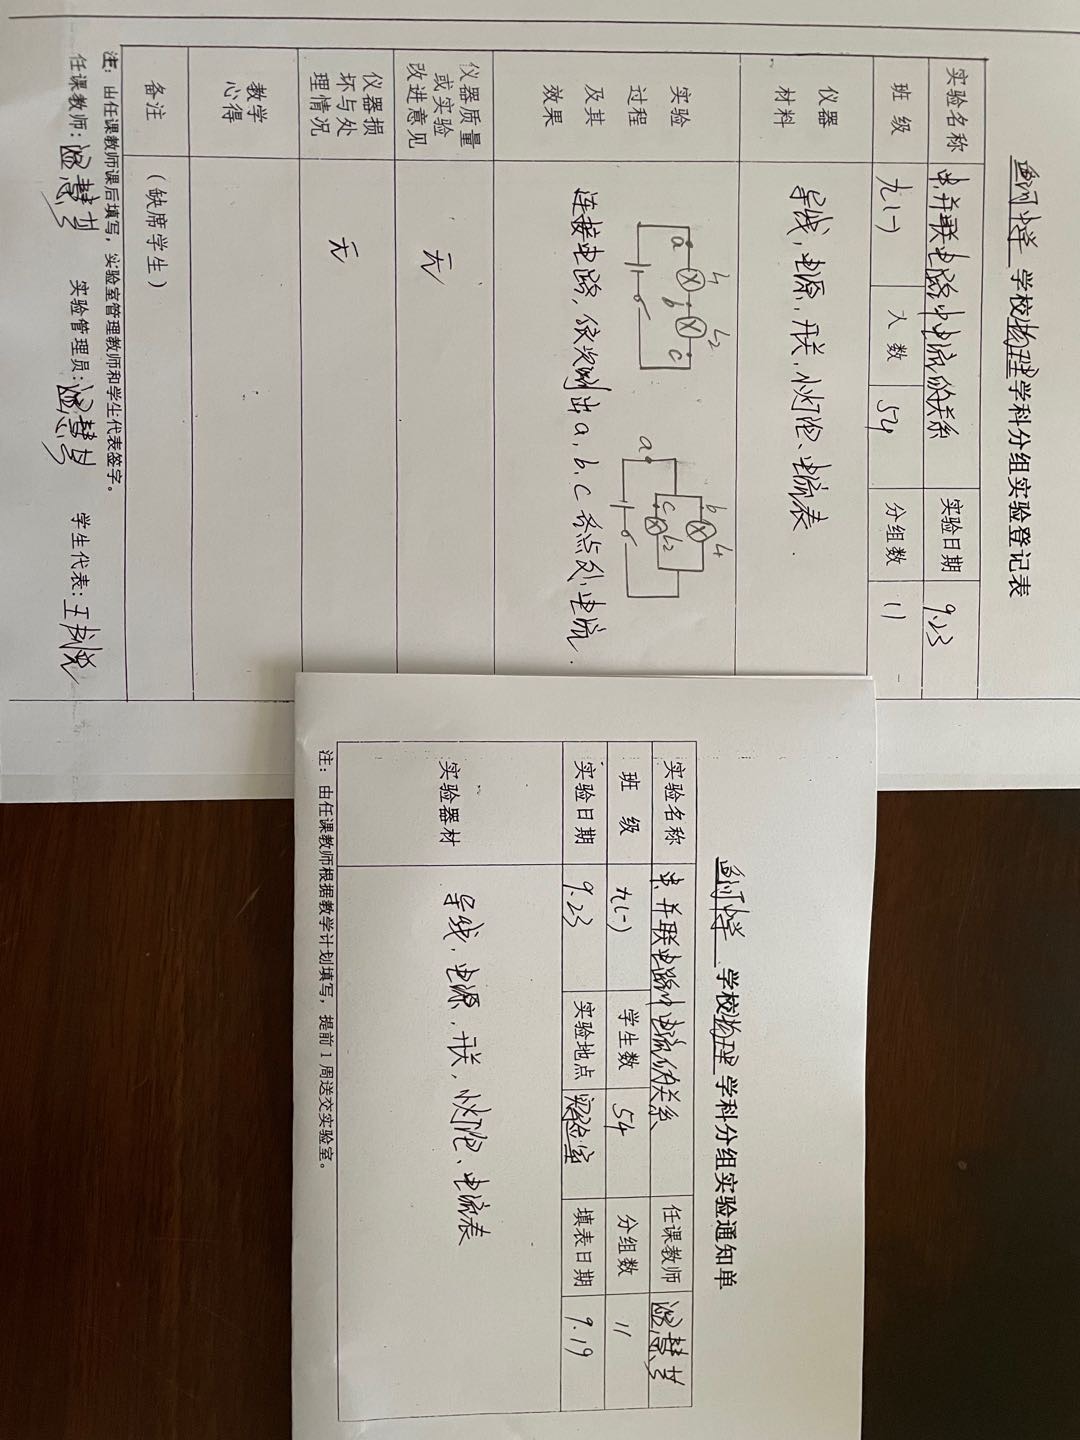 学校物理学科分组实验登记表
实验名称 串、并联电路中电流的关系 实验日期 9.23
班级 九(一) 人数 54 分组数 11
仪器材料 导线,电源,开关,灯泡、电流表.
实验过程及其效果
a L1 b L2 c
a b L1 c L2
连接电路,依次测出a,b,c各点处电流.
仪器质量或实验改进意见 无
仪器损坏与处理情况 无
教学心得
备注 (缺席学生)
注:由任课教师课后填写,实验室管理教师和学生代表签字。
任课教师: 实验管理员: 学生代表:王
学校物理学科分组实验通知单
实验名称 串、并联电路中电流的关系 任课教师
班级 九(一) 学生数 54 分组数 11
实验日期 9.23 实验地点 实验室 填表日期 9.19
实验器材 导线、电源,开关,灯泡、电流表
注:由任课教师根据教学计划填写,提前1周送交实验室。